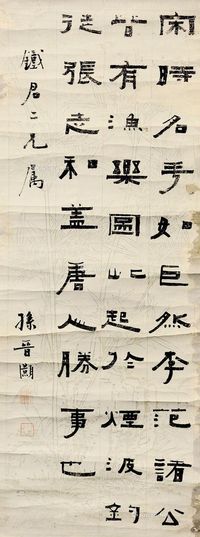 宋時名手如巨然李范諸公
皆有漁樂圖此起於煙波釣
徒張志和蓋唐人勝事也
鐵君二兄属
孫晉灝